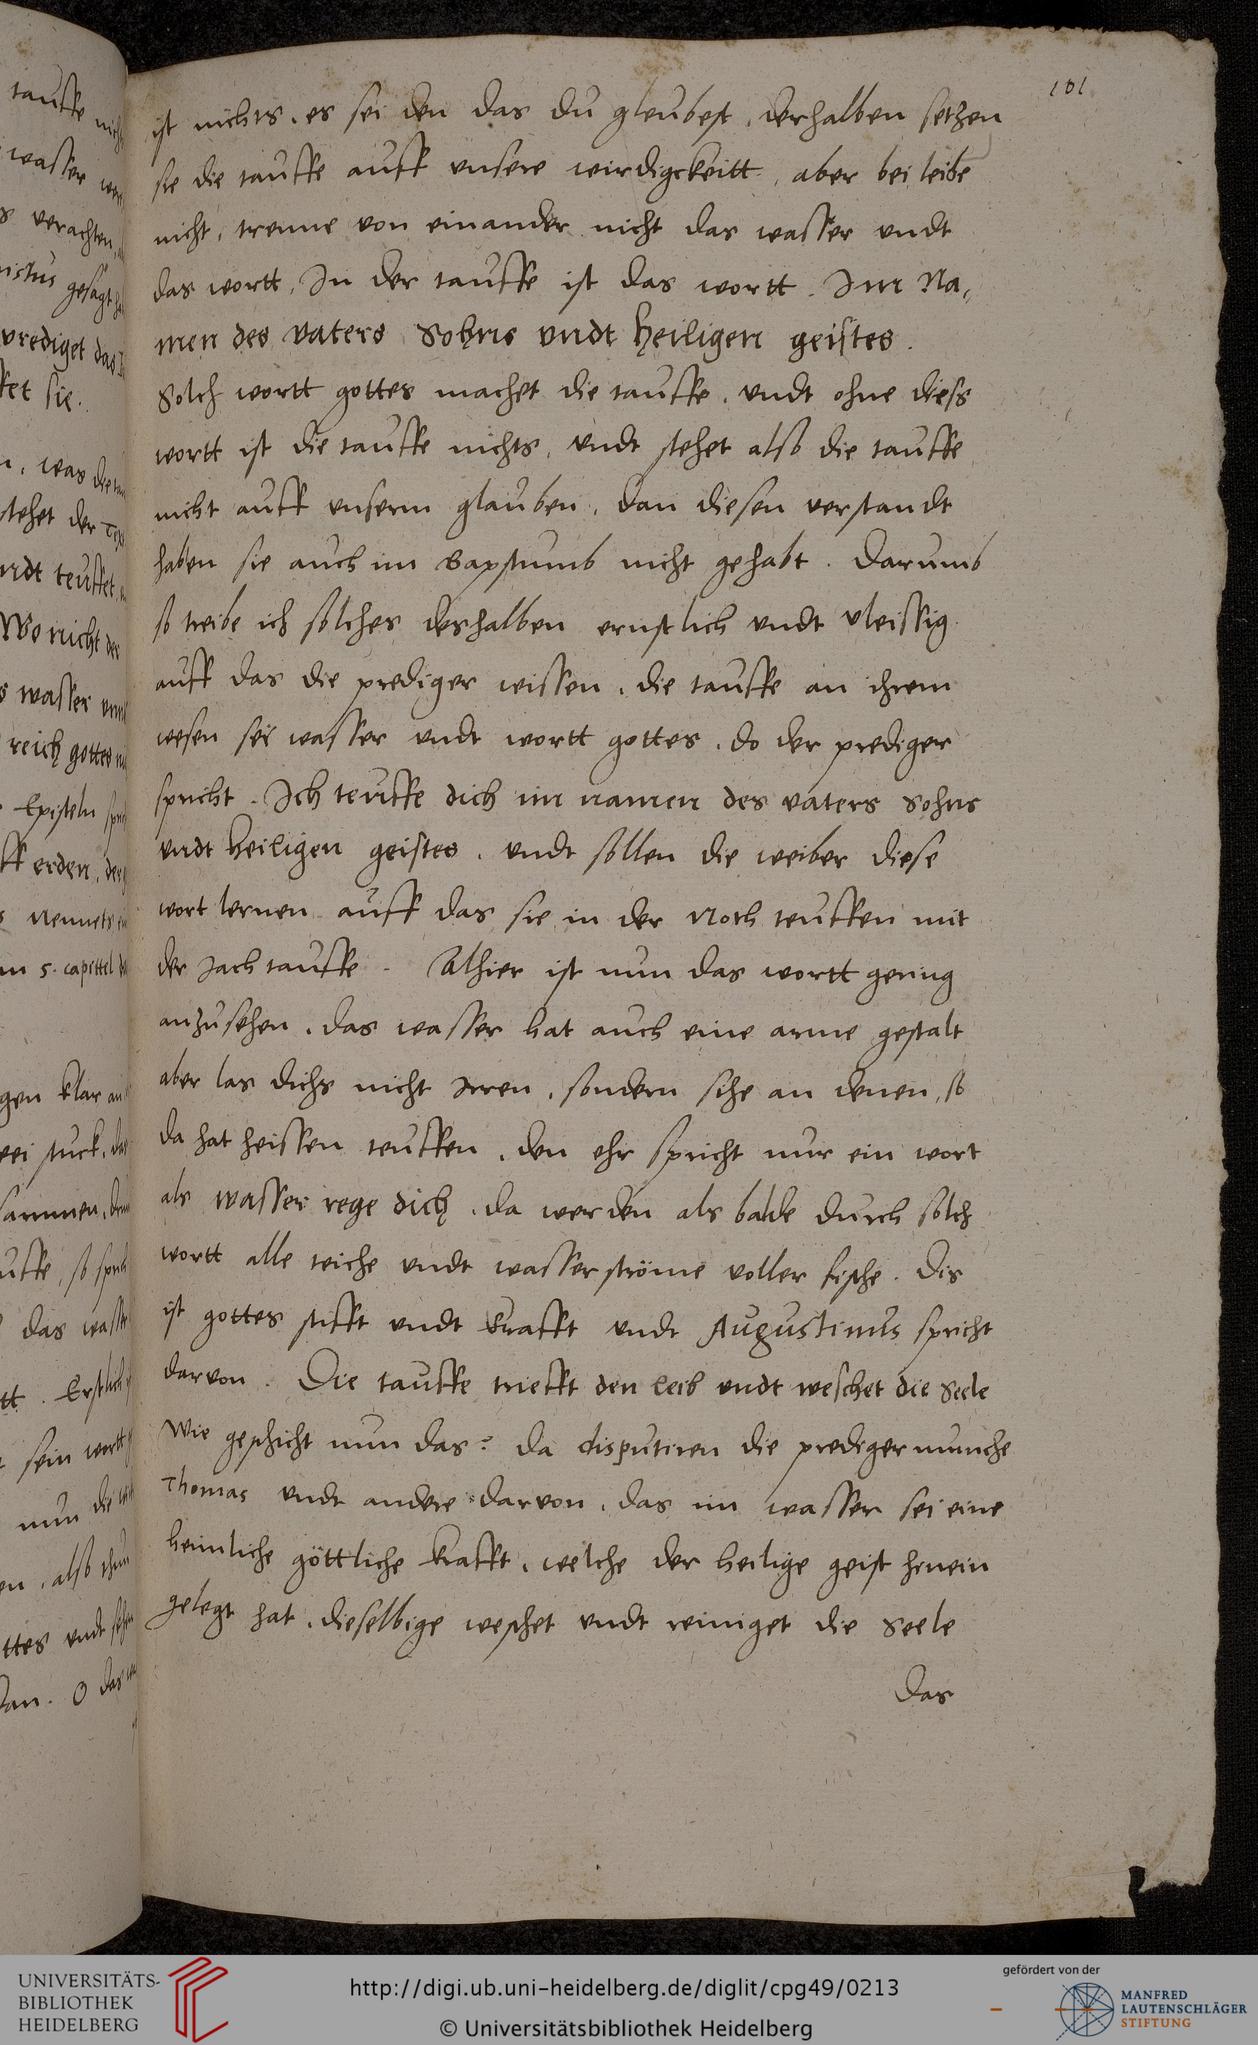 101
ist nichts, es sei den das du gleubest, derhalben setzen
sie die tauffe auff unsere wirdigckeitt, aber bei leibe
nicht, trenne von einander nicht das wasser undt
das wortt, In der tauffe ist das wortt. Im Na,
men des vaters Sohns undt heiligen geistes.
Solch wortt gottes machet die tauffe, undt ohne diess
wortt ist die tauffe nichts, undt stehet also die tauffe
nicht auff unserm glauben, dan diesen verstandt
haben sie auch im Bapstumb nicht gehabt. Darumb
so treibe ich solches deshalben ernstlich undt vleissig
auff das die prediger wissen, die tauffe an ihrem
wesen sei wasser undt wortt gottes, do der prediger
spricht. Ich teuffe dich im namen des vaters Sohns
undt heiligen geistes, undt sollen die weiber diese
wort lernen auff das sie in der Noth teuffen mit
der Jach tauffe. Alhier ist nun das wortt gering
anzusehen, das wasser hat auch eine arme gestalt
aber las dichs nicht Irren, sondern sihe an denen, so
da hat heissen teuffen, den ehr spricht nur ein wort
als wasser rege dich, da werden als balde durch solch
wortt alle teiche undt wasser ströme voller fische. Dis
ist gottes stifft undt krafft undt Augustinus spricht
darvon. Die tauffe triefft den leib undt weschet die Seele
Wie geschicht nun das? da disputiren die prediger munche
Thomas undt andere darvon, das im wasser sei eine
heimliche göttliche krafft, welche der heilige geist hinein
gelegt hat, dieselbige weschet undt reiniget die Seele
Das
UNIVERSITÄTS-
BIBLIOTHEK
HEIDELBERG
http://digi.ub.uni-heidelberg.de/diglit/cpg49/0213
© Universitätsbibliothek Heidelberg
gefördert von der
MANFRED
LAUTENSCHLÄGER
STIFTUNG